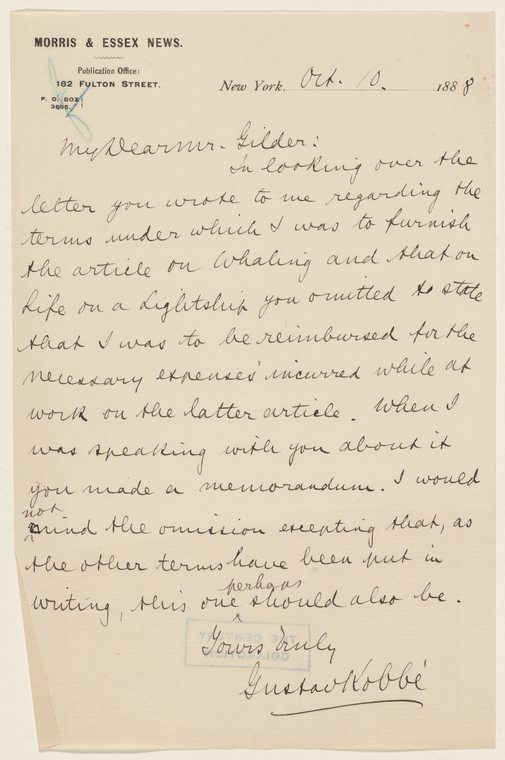 MORRIS & ESSEX NEWS.
Publication Office:
182 FULTON STREET.
P. O. BOX,
3595.
New York, Oct. 10. 1888
My Dear Mr. Gilder:
In looking over the
letter you wrote to me regarding the
terms under which I was to furnish
the article on Whaling and that on
Life on a Lightship you omitted to state
that I was to be reimbursed for the
necessary expenses incurred while at
work on the latter article. When I
was speaking with you about it
you made a memorandum. I would
not
mind the omission excepting that, as
the other terms have been put in
perhaps
writing, this one should also be.
Yours truly
Gustav Kobbé
THE CENTURY
COLLECTION